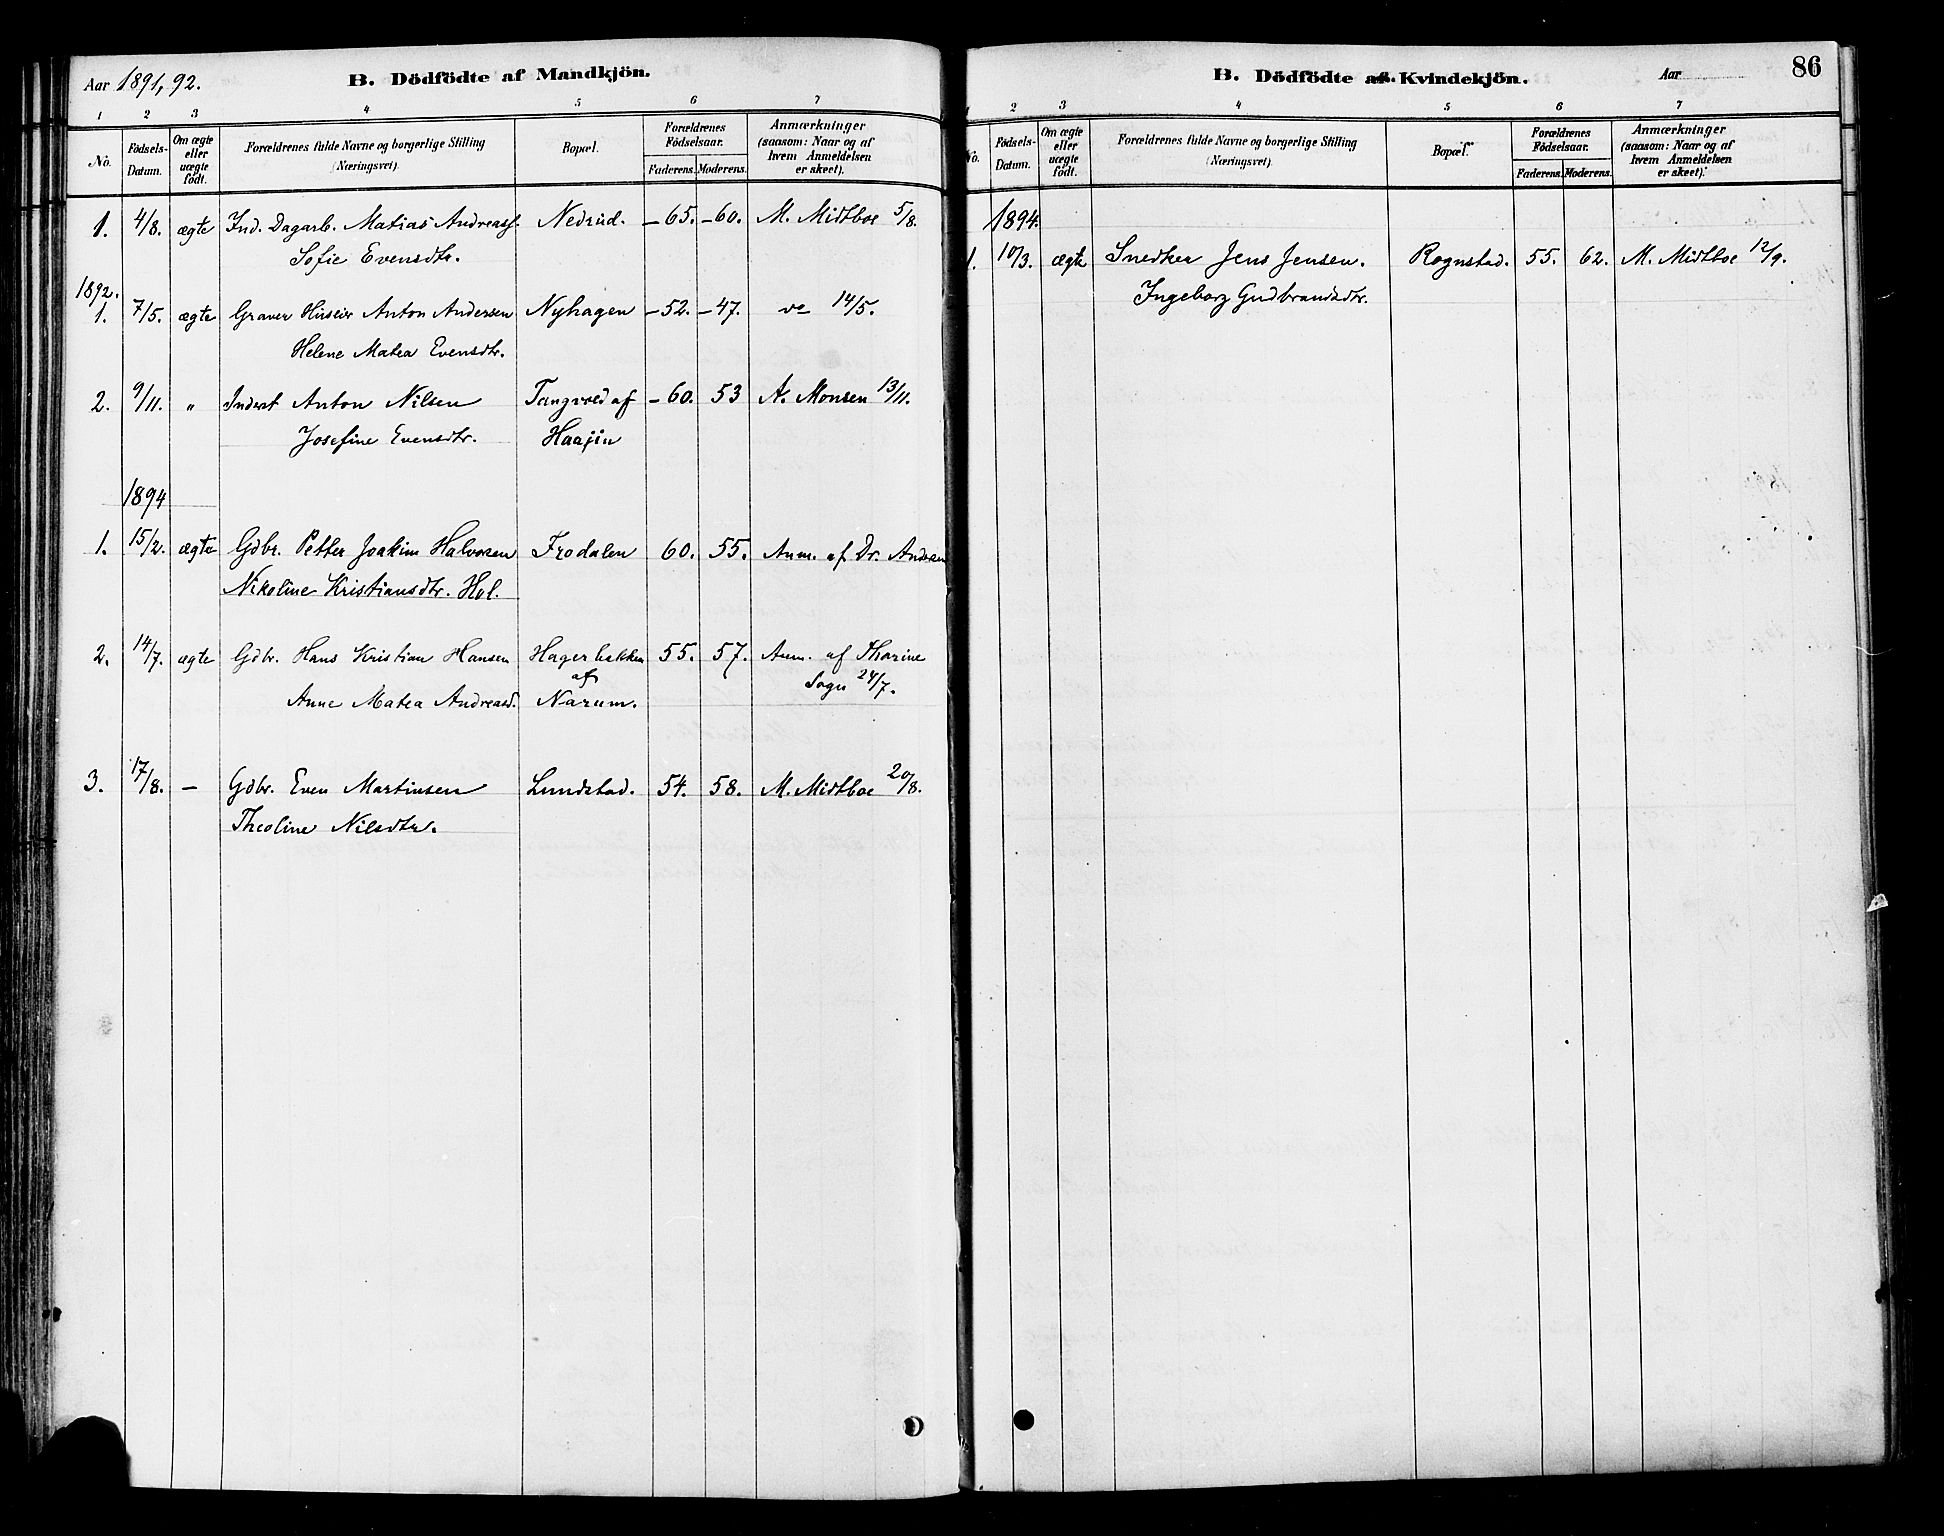 Aar 1891, 92.
B. Dödfödte af Mandkjön.
1 2 3 4 5 6 7
No.
Födsels-Datum.
Om ægte eller uægte födt.
Forældrenes fulde Navne og borgerlige Stilling (Næringsvei).
Bopæl.
Forældrenes Födselsaar.
Faderens. Moderens.
Anmærkninger (saasom: Naar og af hvem Anmeldelsen er skeet).
1. 4/8. ægte Ind. Dagarb. Matias Andreass. Nedrud. – 65. – 60. M. Midtboe 5/8.
Sofie Evensdtr.
1892.
1. 7/5. ægte Graver Huseier Anton Andersen Nyhagen – 52. – 47. 14/5.
Helene Matea Evensdtr.
2. 9/11. " Inderst Anton Nilsen Tangvold af – 60. 53 A. Monsen 13/11.
Josefine Evensdtr. Haajin
1894
1. 15/2. ægte Gdbr. Petter Joakim Halvorsen Frodalen 60. 55. Anm. af Dr. Andersen
Nikoline Kristiansdtr. Hol.
2. 14/7. ægte Gdbr. Hans Kristian Hansen Hagerbakken 55. 57. Anm. af Tharine
af Sogn 24/7.
Anne Matea Andreasd. Narum.
3. 17/8. – Gdbr. Even Martinsen Lundstad. 54. 58. M. Midtboe 20/8.
Theoline Nilsdtr.
B. Dödfödte af Kvindekjön.
Aar
86
1 2 3 4 5 6 7
No.
Födsels-Datum.
Om ægte eller uægte födt.
Forældrenes fulde Navne og borgerlige Stilling (Næringsvei).
Bopæl.
Forældrenes Födselsaar.
Faderens. Moderens.
Anmærkninger (saasom: Naar og af hvem Anmeldelsen er skeet).
1894.
1. 10/3. ægte Snedker Jens Jensen. Rognstad. 55. 62. M. Midtboe 12/9.
Ingeborg Gudbrandsdtr.